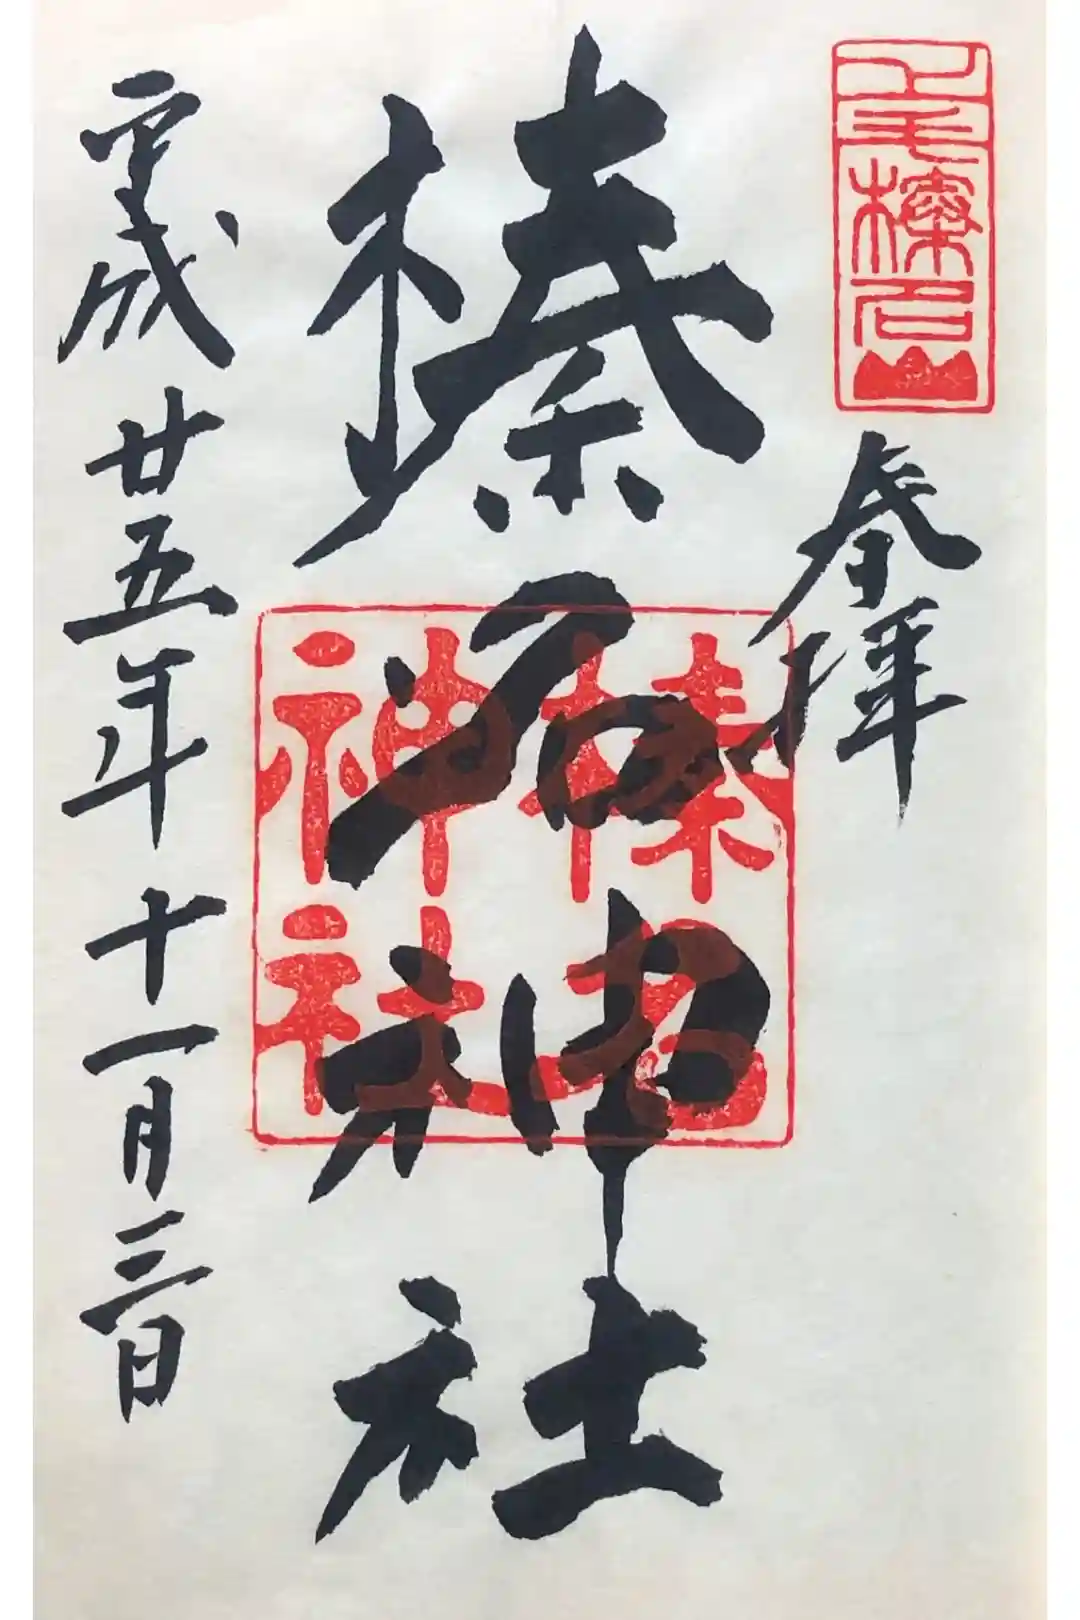 上毛榛名山
参拝
榛名神社
榛名神社
平成廿五年十一月三日